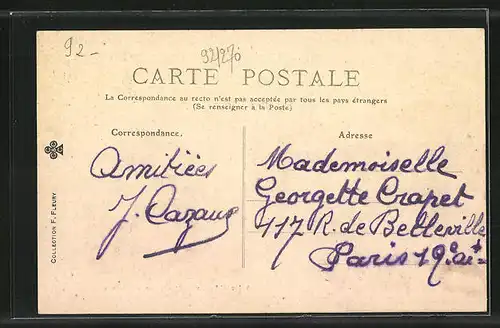 92-
92/270
CARTE POSTALE
La Correspondance au recto n'est pas acceptée par tous les pays étrangers
(Se renseigner à la Poste)
Correspondance.
Amitiées
J. Cazaux
Adresse
Mademoiselle
Georgette Crapet
117 R. de Belleville
Paris 19e art
COLLECTION F. FLEURY